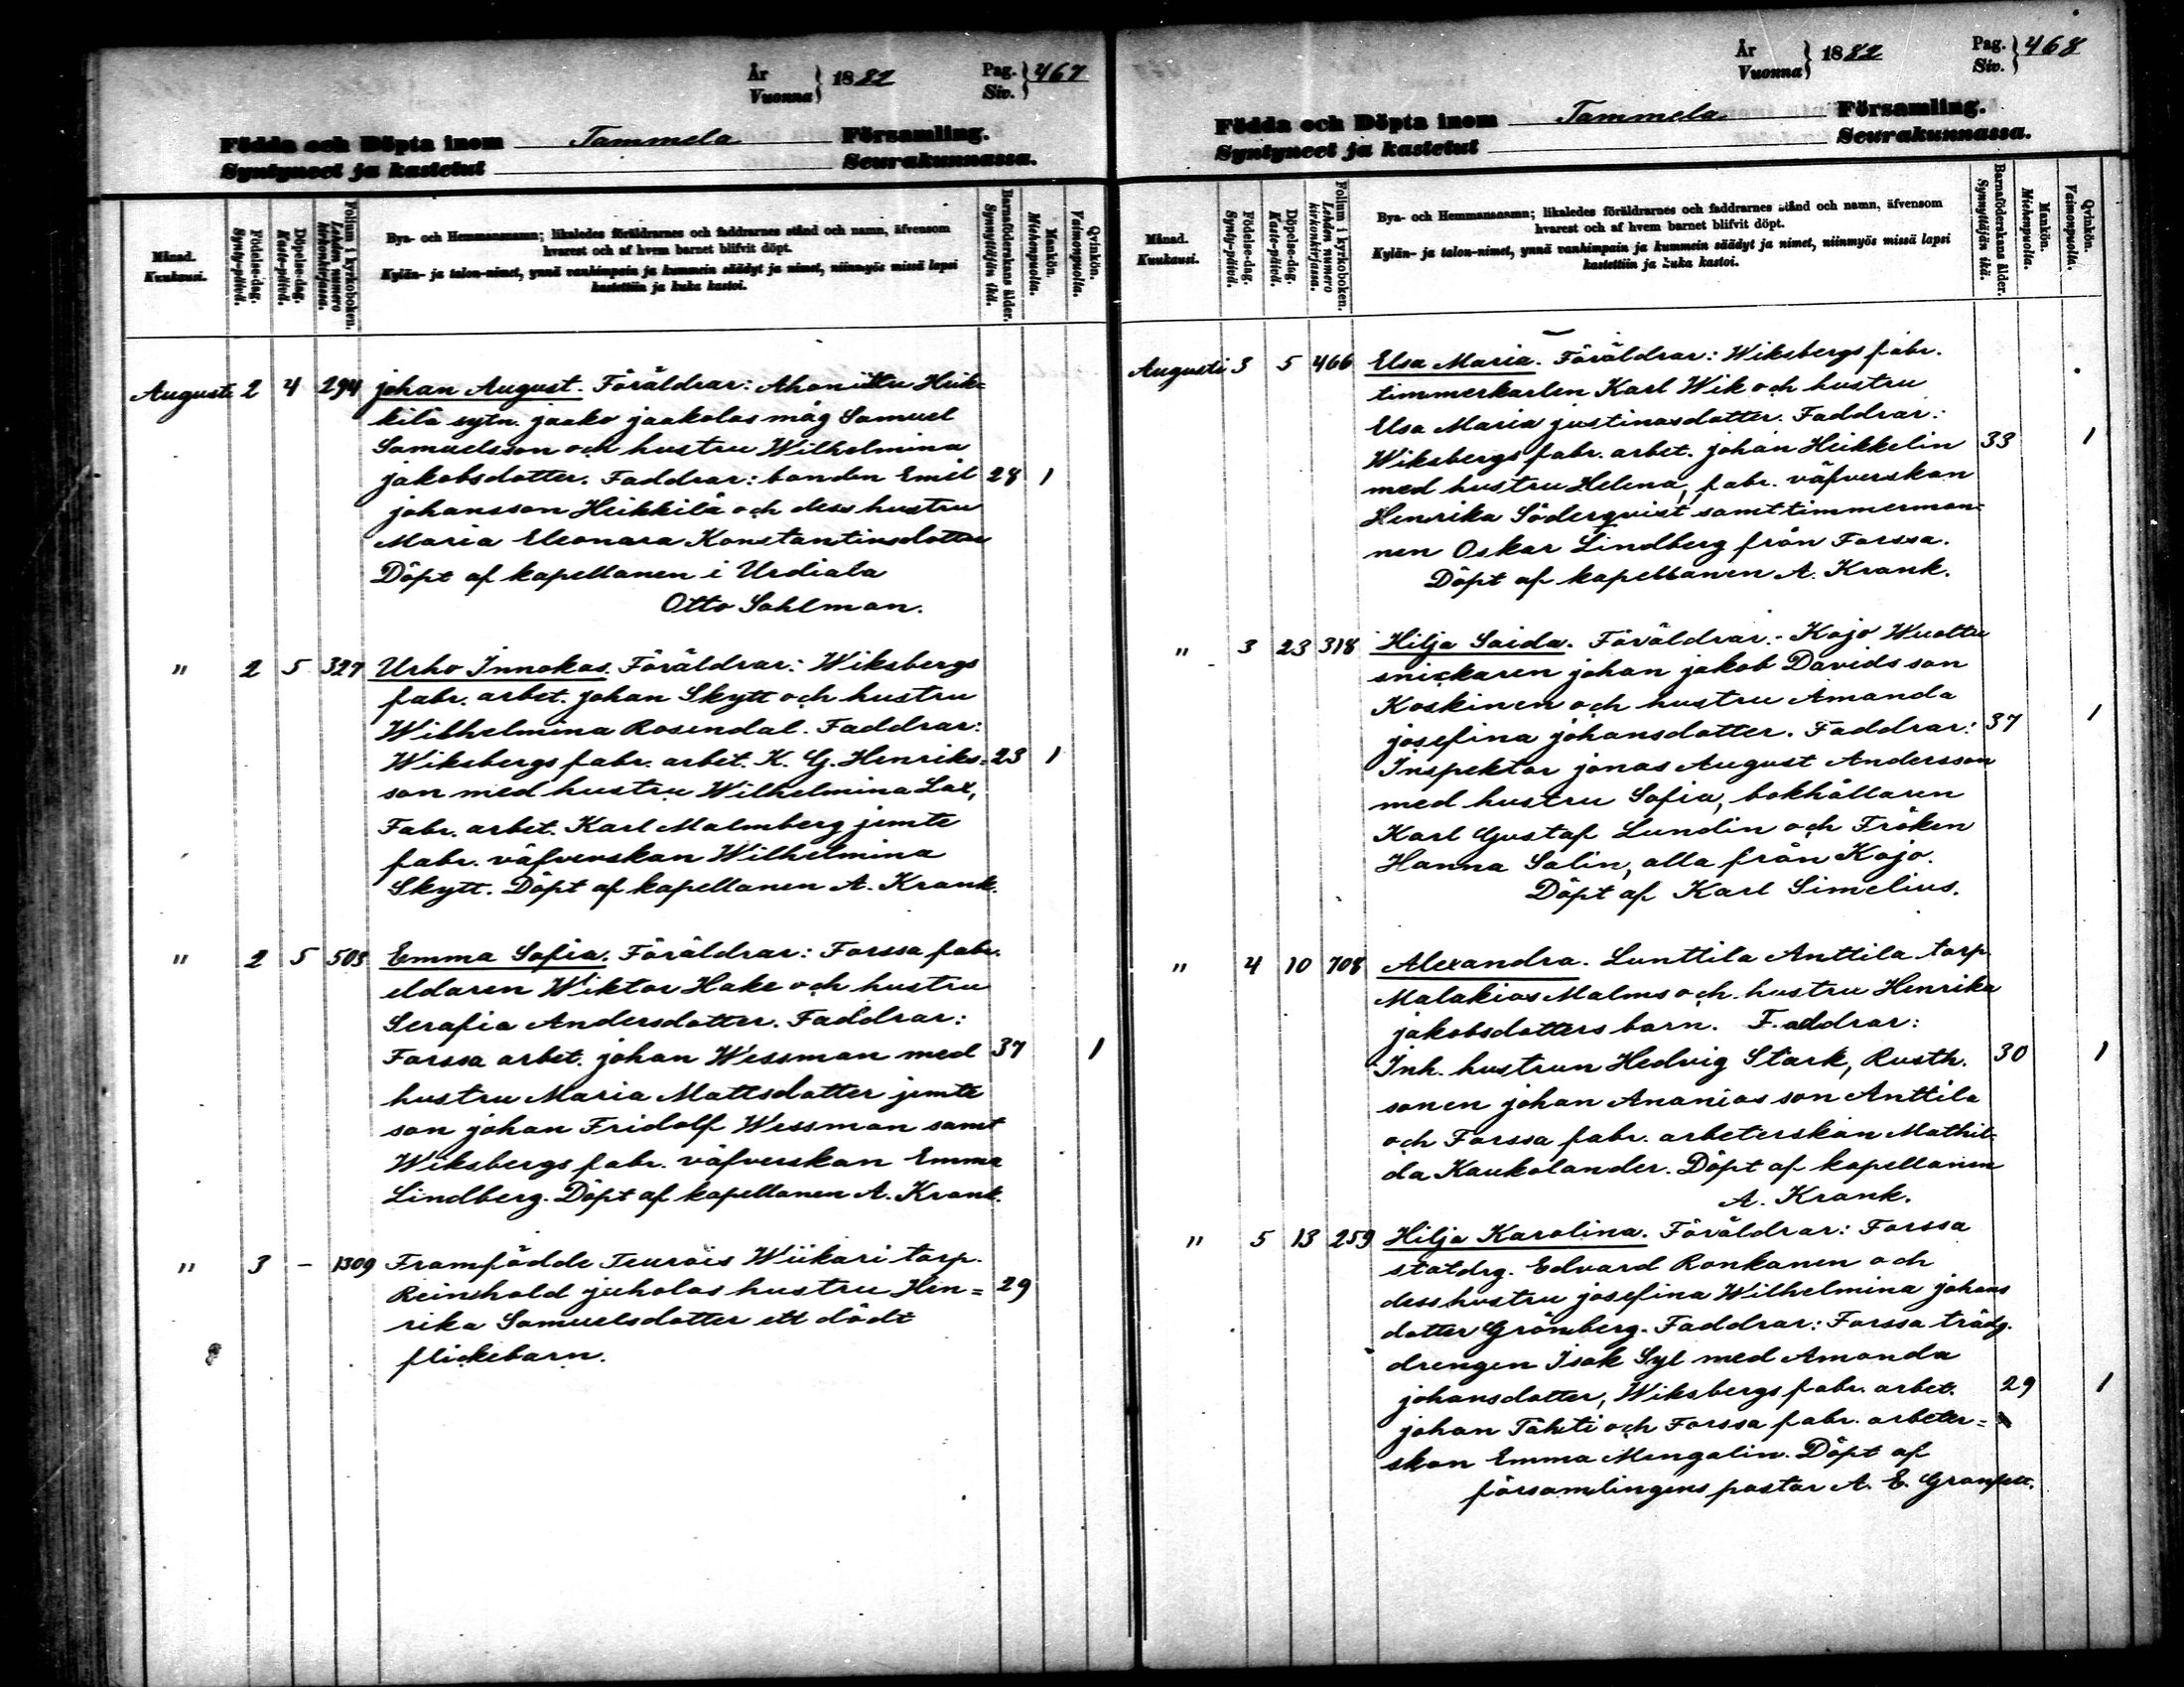 År
Vuonna } 1882
Pag.
Siv. } 467
Födda och Döpta inom Tammela Församling.
Syntyneet ja kastetut Seurakunnassa.
Månad.
Kuukausi.
Födelse-dag.
Synty-päivä.
Döpelse-dag.
Kaste-päivä.
Folium i kyrkoboken.
Lehden numero
kirkonkirjassa.
Bya- och Hemmansnamn; likaledes föräldrarnes och faddrarnes stånd och namn, äfvensom
hvarest och af hvem barnet blifvit döpt.
Kylän- ja talon-nimet, ynnä vanhimpain ja kummein säädyt ja nimet, niinmyös missä lapsi
kastettiin ja kuka kastoi.
Barnaföderskans ålder.
Synnyttäjän ikä.
Mankön.
Miehenpuolia.
Qvinkön.
Vaimonpuolia.
Augusti 2 4 294 Johan August. Föräldrar: Ahonittu Heik=
kilä sytn. Jaako Jaakolas måg Samuel
Samuelsson och hustru Wilhelmina
Jakobsdotter. Faddrar: bonden Emil 28 1
Johansson Heikkilä och dess hustru
Maria Eleonara Konstantinsdotter
Döpt af kapellanen i Urdiala
Otto Sahlman.
" 2 5 327 Urho Innokas. Föräldrar: Wiksbergs
fabr. arbet. Johan Skytt och hustru
Wilhelmina Rosendal. Faddrar:
Wiksbergs fabr. arbet. K. G. Henriks= 23 1
son med hustru Wilhelmina Lax,
Fabr. arbet. Karl Malmberg jemte
fabr. väfverskan Wilhelmina
Skytt. Döpt af kapellanen A. Krank.
" 2 5 503 Emma Sofia. Föräldrar: Forssa fabr.
eldaren Wiktor Hake och hustru
Serafia Andersdotter. Faddrar:
Forssa arbet. Johan Wessman med 37 1
hustru Maria Mattsdotter jemte
son Johan Fridolf Wessman samt
Wiksbergs fabr. väfverskan Emma
Lindberg. Döpt af kapellanen A. Krank.
" 3 - 1309 Framfödde Teurois Wiikari torp.
Reinhold Juholas hustru Hen= 29
rika Samuelsdotter ett dödt
flickebarn.
År
Vuonna } 1882
Pag.
Siv. } 468
Födda och Döpta inom Tammela Församling.
Syntyneet ja kastetut Seurakunnassa.
Månad.
Kuukausi.
Födelse-dag.
Synty-päivä.
Döpelse-dag.
Kaste-päivä.
Folium i kyrkoboken.
Lehden numero
kirkonkirjassa.
Bya- och Hemmansnamn; likaledes föräldrarnes och faddrarnes stånd och namn, äfvensom
hvarest och af hvem barnet blifvit döpt.
Kylän- ja talon-nimet, ynnä vanhimpain ja kummein säädyt ja nimet, niinmyös missä lapsi
kastettiin ja kuka kastoi.
Barnaföderskans ålder.
Synnyttäjän ikä.
Mankön.
Miehenpuolia.
Qvinkön.
Vaimonpuolia.
Augusti 3 5 466 Elsa Maria. Föräldrar: Wiksbergs fabr.
timmerkarlen Karl Wik och hustru
Elsa Maria Justinasdotter. Faddrar:
Wiksbergs fabr. arbet. Johan Heikkelin 33 1
med hustru Helena, fabr. väfverskan
Henrika Söderqvist samt timmerman=
nen Oskar Lindberg från Forssa.
Döpt af kapellanen A. Krank.
" 3 23 318 Hilja Saida. Föräldrar: Kojo Wuoltu
snickaren Johan Jakob Davidsson
Koskinen och hustru Amanda
Josefina Johansdotter. Faddrar: 37 1
Inspektor Jonas August Andersson
med hustru Sofia, bokhållaren
Karl Gustaf Lundin och Fröken
Hanna Salin, alla från Kojo.
Döpt af Karl Simelius.
" 4 10 708 Alexandra. Lunttila Anttila torp.
Malakias Malms och hustru Henrika
Jakobsdotters barn. Faddrar:
Inh. hustrun Hedvig Stark, Rusth. 30 1
sonen Johan Ananiasson Anttila
och Forssa fabr. arbeterskan Mathil=
da Kaukolander. Döpt af kapellanen
A. Krank.
" 5 13 259 Hilja Karolina. Föräldrar: Forssa
statdrg. Edvard Ronkanen och
dess hustru Josefina Wilhelmina Johans
dotter Grönberg. Faddrar: Forssa trädg.
drengen Isak Syl med Amanda
Johansdotter, Wiksbergs fabr. arbet. 29 1
Johan Tähti och Forssa fabr. arbeter=
skan Emma Mengalin. Döpt af
församlingens pastor A. E. Granfelt.